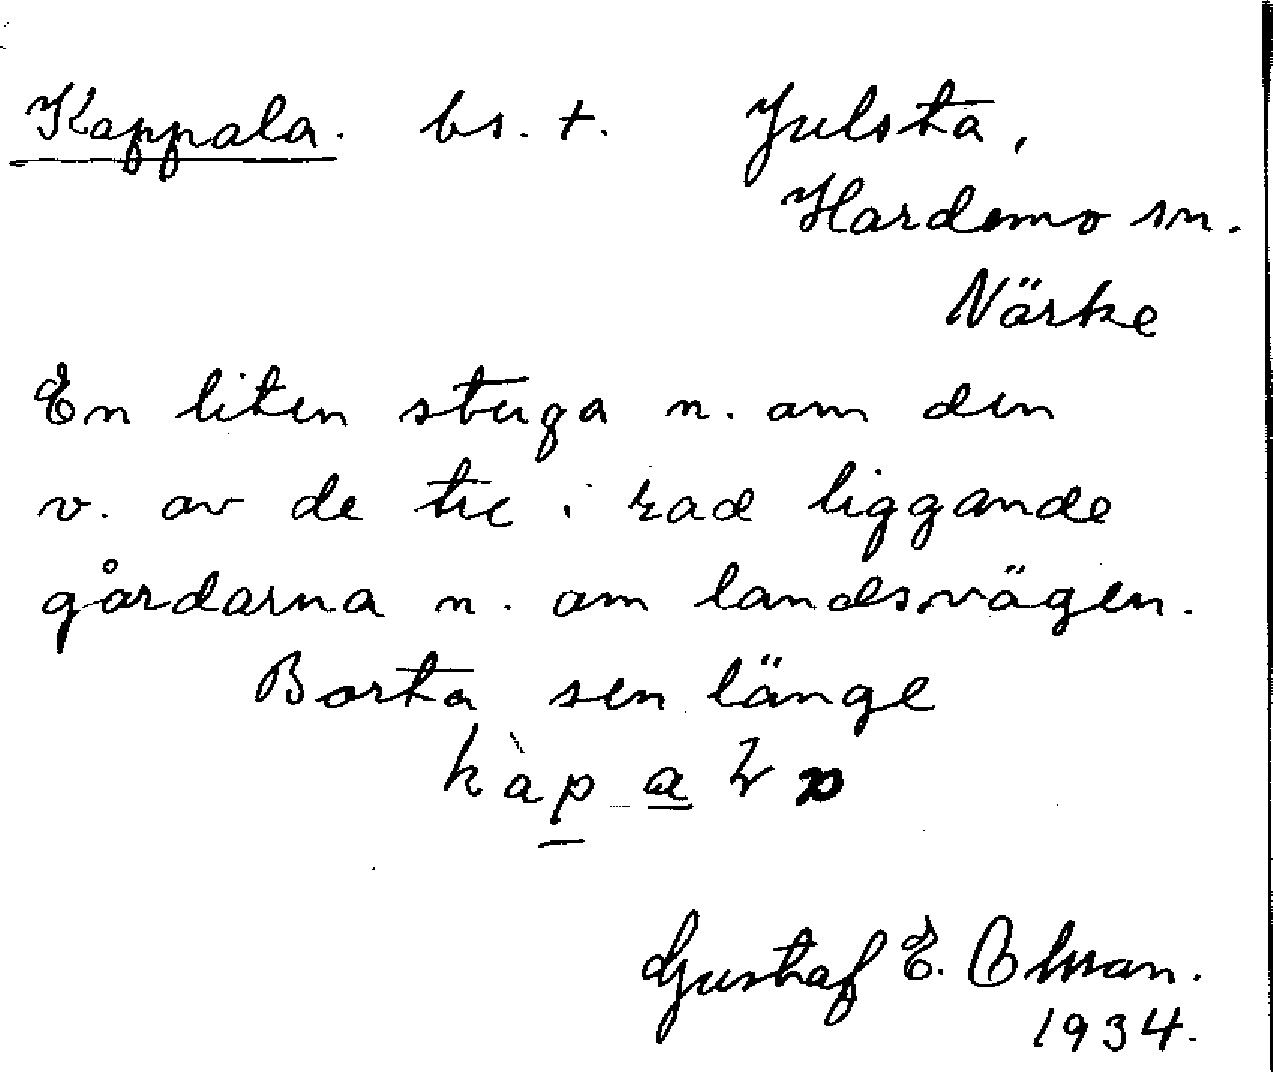 Kappala. bs. t. Julsta,
Hardemo sn.
Närke
En liten stuga n. om den
v. av de tre i rad liggande
gårdarna n. om landsvägen.
Borta sen länge
Gustaf E. Ohman.
1934.